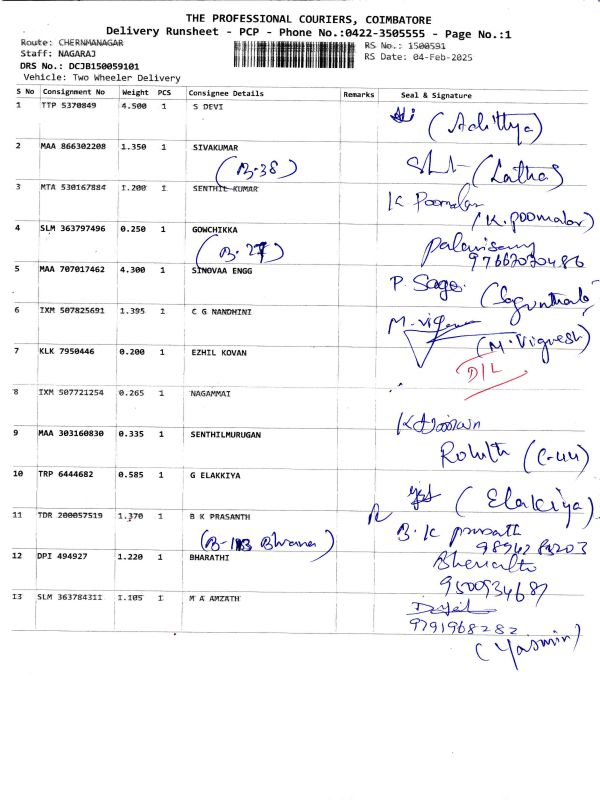 THE PROFESSIONAL COURIERS, COIMBATORE
Delivery Runsheet - PCP - Phone No.:0422-3505555 - Page No.:1
Route: CHERNMANAGAR
RS No.: 1500591
Staff: NAGARAJ
RS Date: 04-Feb-2025
DRS No.: DCJB150059101
Vehicle: Two Wheeler Delivery
S No Consignment No Weight PCS Consignee Details Remarks Seal & Signature
1 TTP 5370849 4.500 1 S DEVI
(Adithya)
2 MAA 866302208 1.350 1 SIVAKUMAR
(B-38)
(Latha)
3 MTA 530167884 1.200 1 SENTHIL KUMAR
K Poomalar
(K.Poomalar)
4 SLM 363797496 0.250 1 GOWCHIKKA
(B-27)
palanisamy
5 MAA 707017462 4.300 1 SINOVAA ENGG
P. Sago
6 IXM 507825691 1.395 1 C G NANDHINI
(M.Vignesh)
7 KLK 7950446 0.200 1 EZHIL KOVAN
D/L
8 IXM 507721254 0.265 1 NAGAMMAI
9 MAA 303160830 0.335 1 SENTHILMURUGAN
Rohith (C-44)
10 TRP 6444682 0.585 1 G ELAKKIYA
(Elakiya)
11 TDR 200057519 1.370 1 B K PRASANTH
B.K
12 DPI 494927 1.220 1 BHARATHI
9500934687
13 SLM 363784311 1.105 1 M A AMZATH
9791968282
(Yasmin)